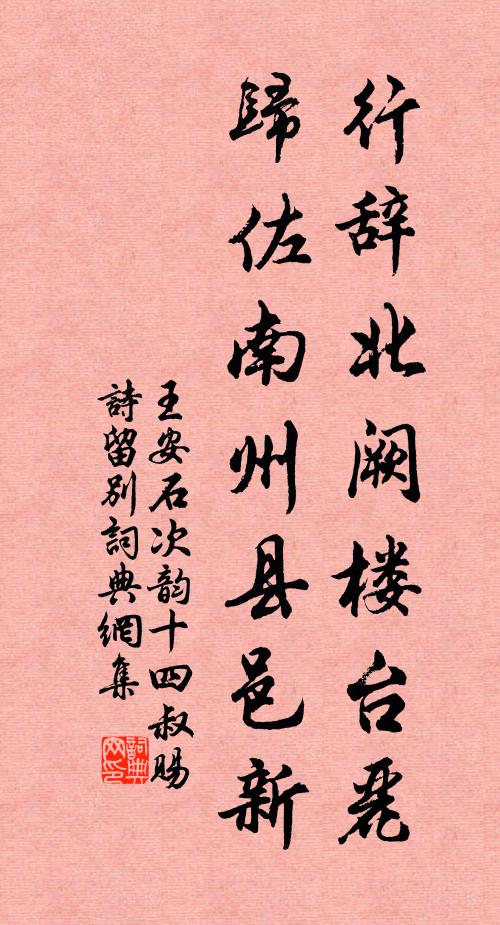 行辞北阙楼台丽
歸佐南州县邑新
王安石次韵十四叔赐
詩留别詞典網集
詞典网印